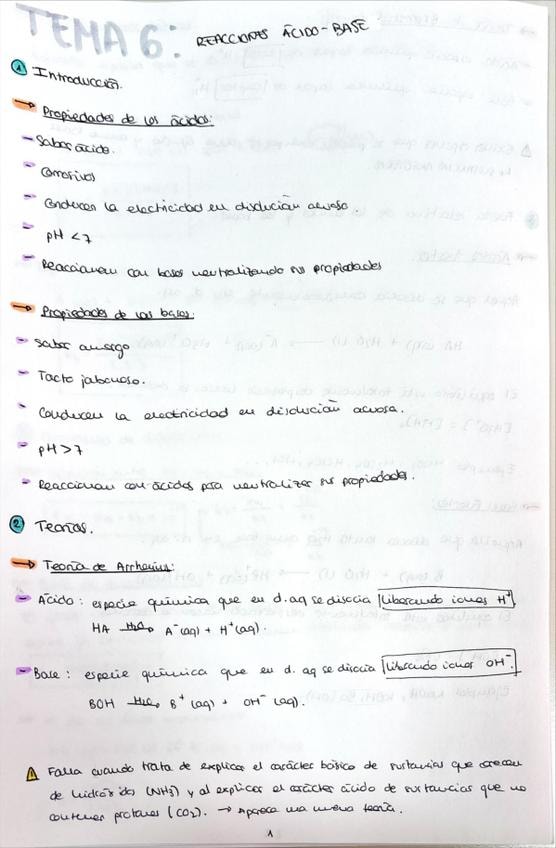 TEMA 6: REACCIONES ÁCIDO-BASE
1 Introducción.
→ Propiedades de los ácidos:
- Sabor ácido.
- Corrosivos
- Conducen la electricidad en disolución acuosa
- pH < 7
- Reaccionan con bases neutralizando sus propiedades
→ Propiedades de las bases:
- Sabor amargo
- Tacto jabonoso.
- Conducen la electricidad en disolución acuosa.
- pH > 7
- Reaccionan con ácidos para neutralizar sus propiedades.
2 Teorías.
→ Teoría de Arrhenius:
- Ácido: especie química que en d. aq se disocia liberando iones H⁺
HA —H₂O→ A⁻(aq) + H⁺(aq).
- Base: especie química que en d. aq se disocia liberando iones OH⁻.
BOH —H₂O→ B⁺(aq) + OH⁻(aq).
⚠ Falla cuando trata de explicar el carácter básico de sustancias que carecen
de hidróxidos (NH₃) y al explicar el carácter ácido de sustancias que no
contienen protones (CO₂). → Aparece una nueva teoría.
1